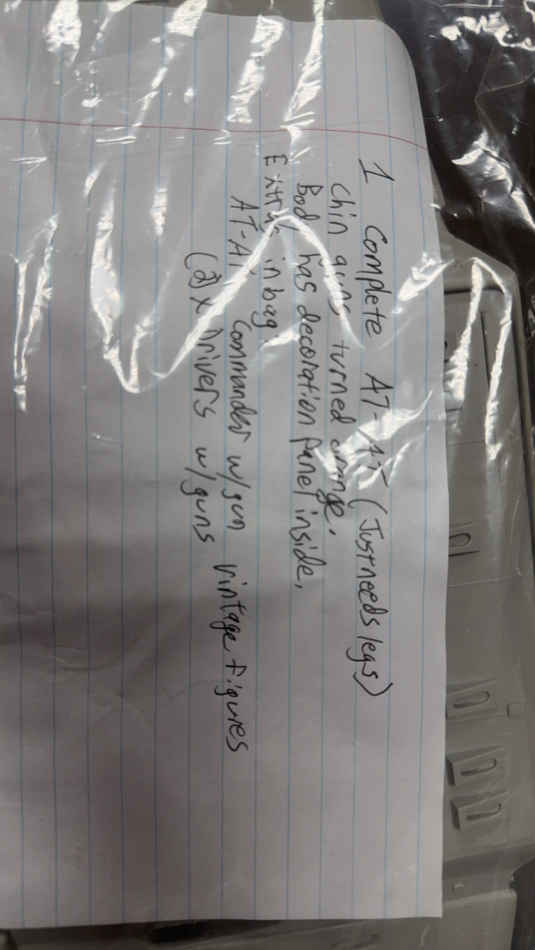 1 Complete AT-AT (Just needs legs)
Chin guns turned orange.
Body has decoration panel inside,
Extras in bag:
AT-AT Commander w/gun vintage figures
(2)x Drivers w/guns